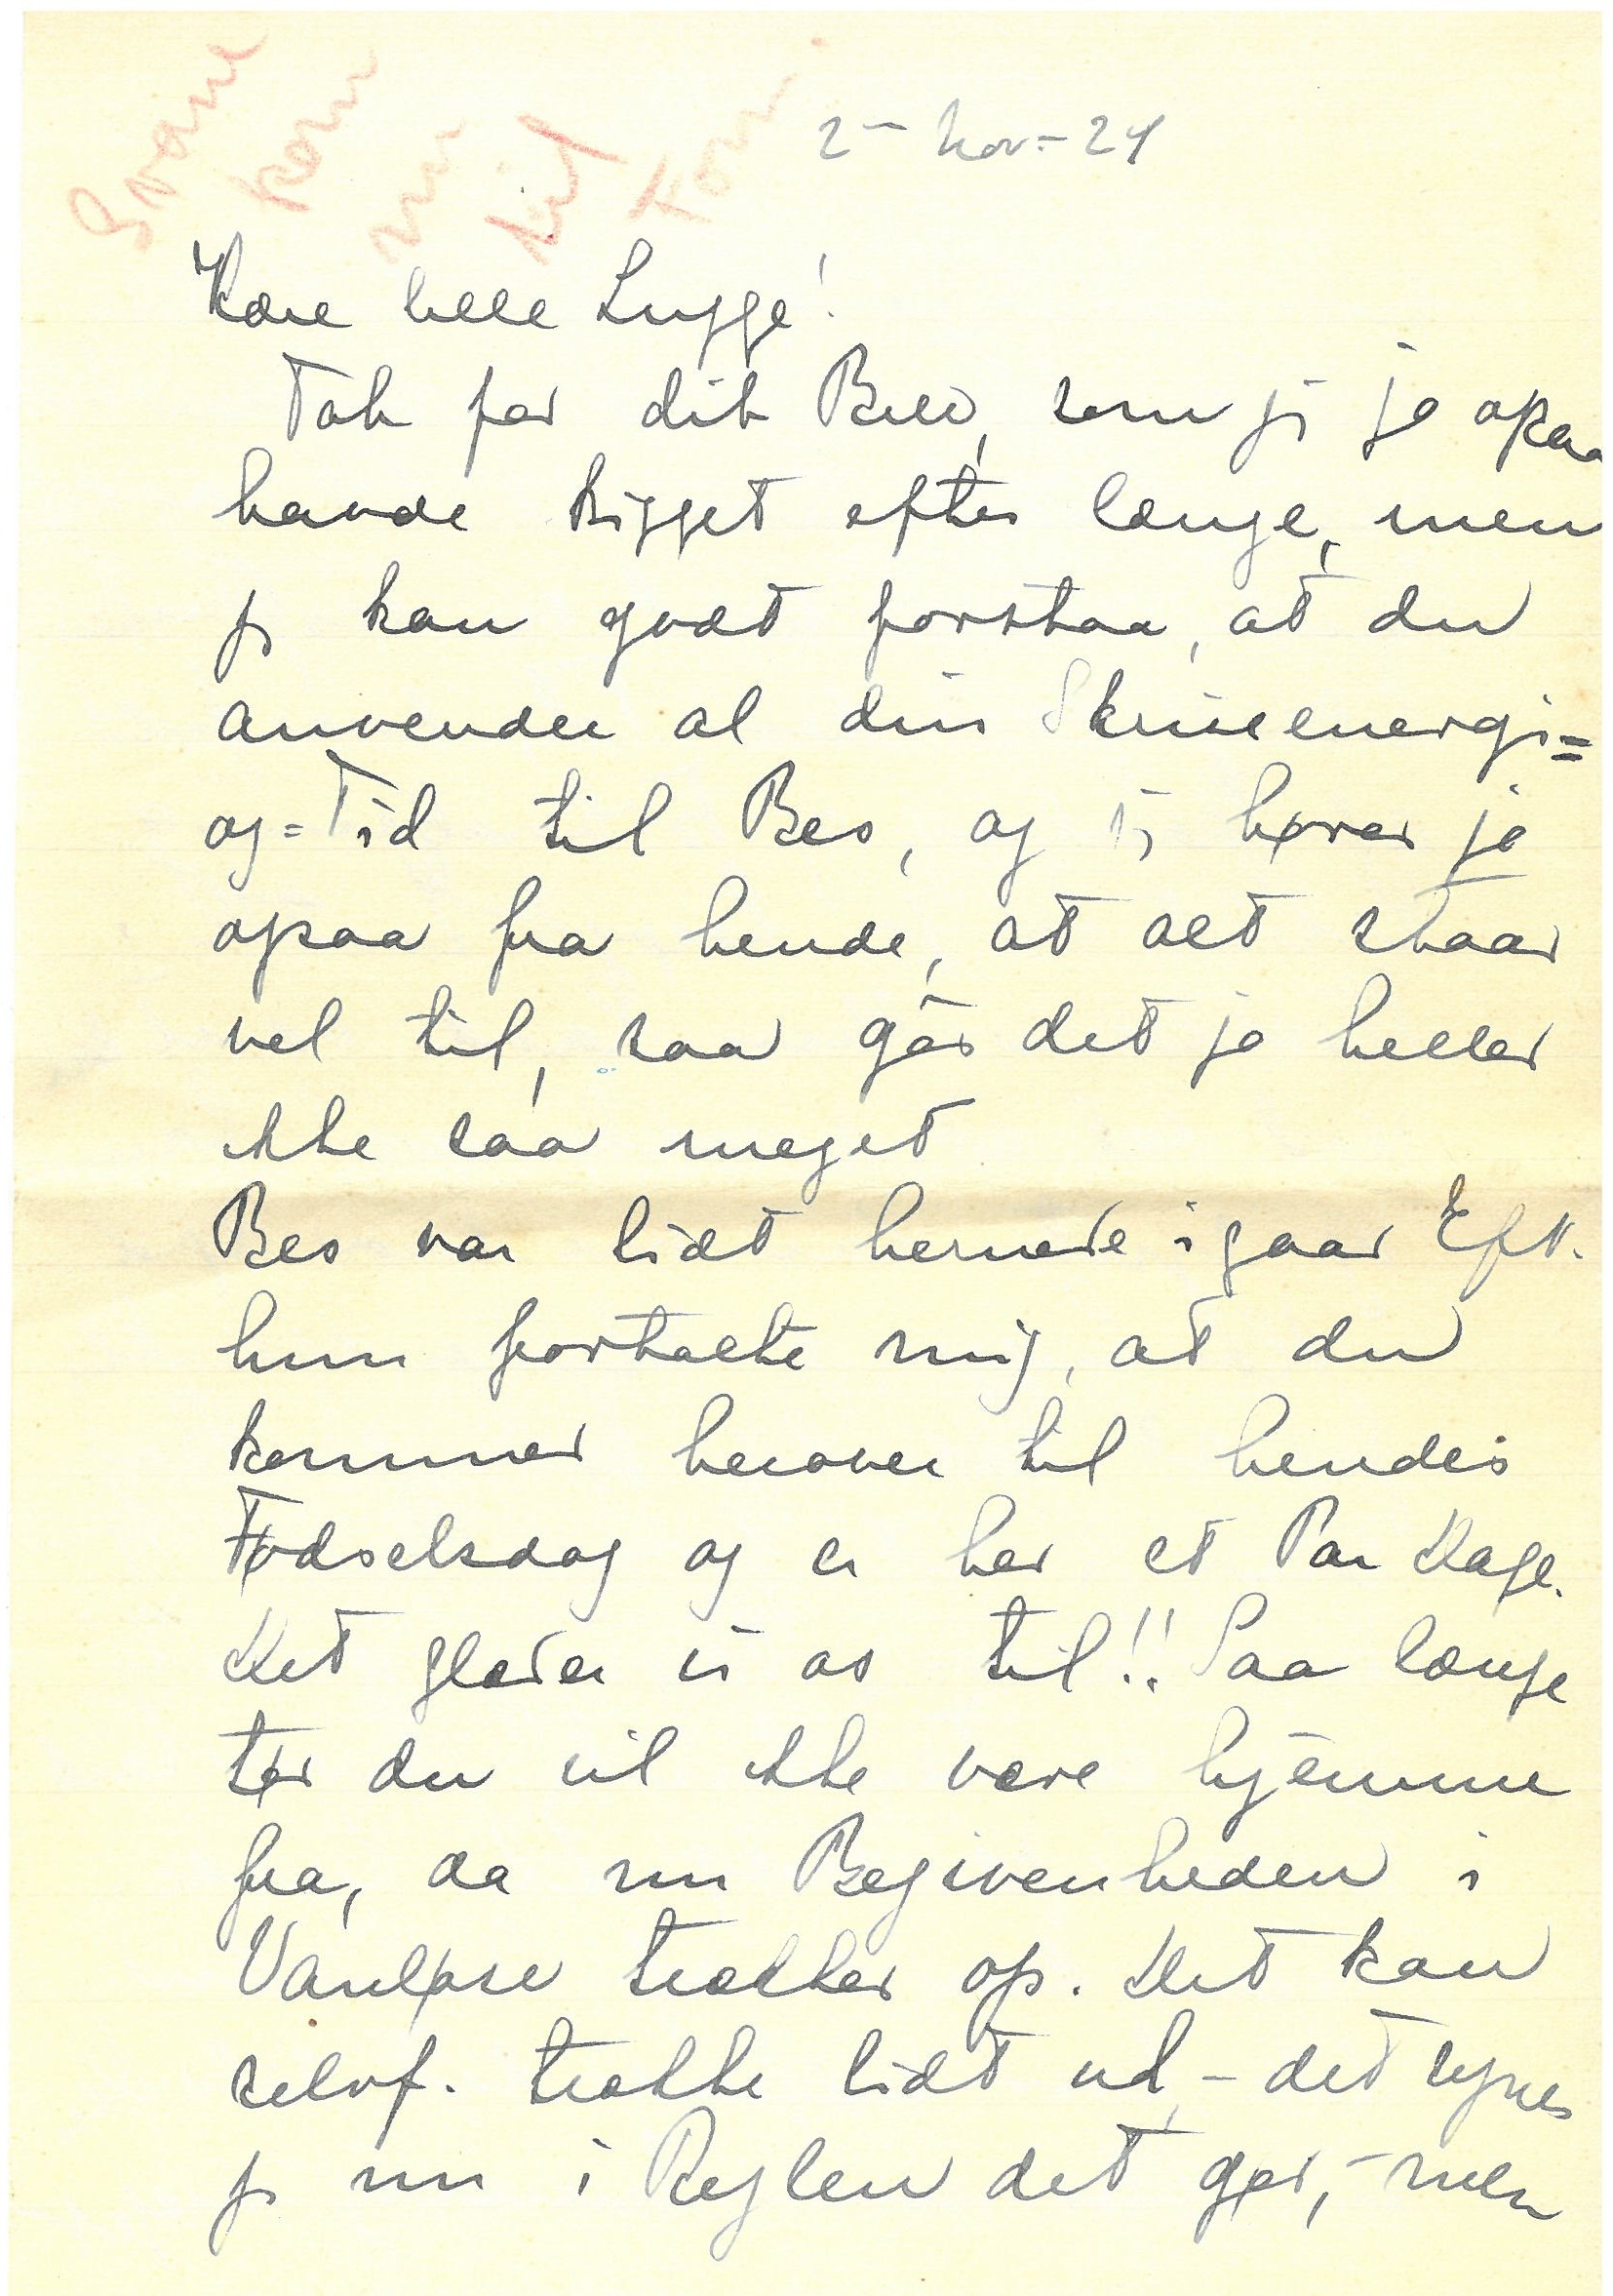 Svane
kom
nu
lidt
kom.
2 - Nov - 24
Kære lille Lugge!
Tak for dit Brev, som jeg jo ogsaa
havde kigget efter længe, men
jeg kan godt forstaa, at du
anvender al din Skriveenergi=
og=Tid til Bes, og vi hører jo
ogsaa fra hende, at alt staar
vel til, saa gør det jo heller
ikke saa meget
Bes var lidt hernede igaar Eft.
hun fortalte mig, at du
kommer herover til hendes
Fødselsdag og er her et Par Dage.
Det glæder vi os til!! Saa længe
tør du vil ikke være hjemme
fra, da nu Begivenheden i
Vanløse trækker op. Det kan
selvf. trække lidt ud, - det synes
jeg nu i Reglen det gør, - men